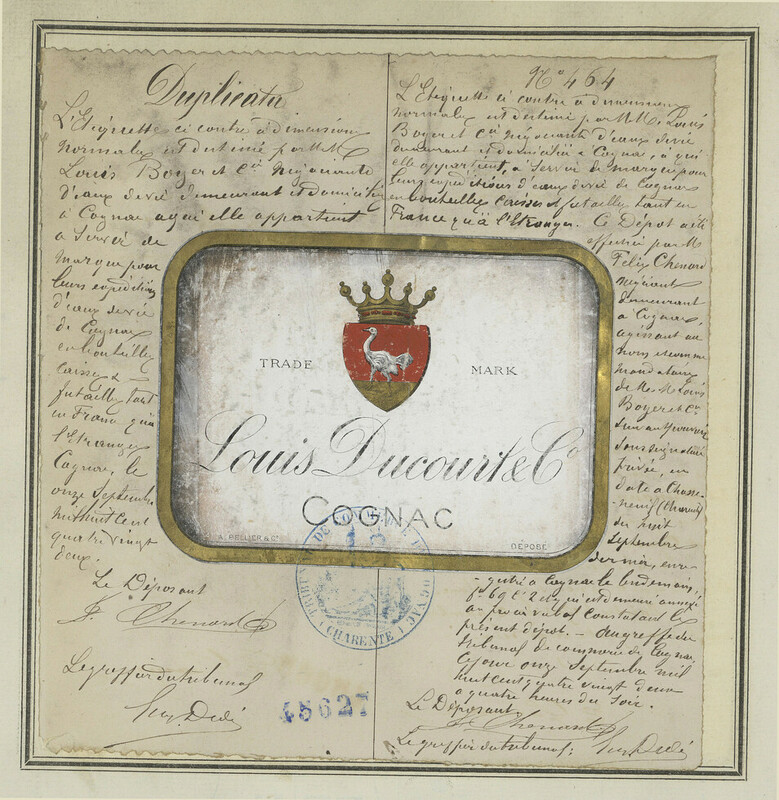 Duplicata
L'Etiquette ci contre à dimension
normale est destiné par MM
Louis Boyer et Cie Négociants
d'eaux de vie demeurant et domicilié
à Cognac a qui elle appartient
a Servir de
marque pour
leurs expéditions
d'eaux de vie
de Cognac
en bouteilles
caisses &
futailles tant
en France qu'à
l'Etranger
Cognac, le
onze Septembre
mil huit cent
quatre vingt
deux.
Le Déposant
F. Chenard
Le greffier du tribunal
No 464
L'Etiquette ci contre à dimension
normale est destiné par MM. Louis
Boyer et Cie négociants d'eaux de vie
demeurant et domicilié à Cognac, à qui
elle appartient, à Servir de marque pour
leurs expéditions d'eaux de vie de Cognac
en bouteilles caisses et futailles tant en
France qu'à l'Etranger. Ce Dépot a été
effectué par M
Felix Chenard
négociant
demeurant
à Cognac,
agissant au
nom et comme
mandataire
de MM Louis
Boyer et Cie
suivant pouvoir
sous signature
privée, en
date à Chasse-
neuil (Charente)
du huit
Septembre
dernier, enre-
gistré à Cognac le lendemain,
fo 69 
présent dépot. - Au greffe du
tribunal de commerce de Cognac
ce jour onze Septembre mil
huit cent quatre vingt deux
a quatre heures du Soir.
Le Déposant
F. Chenard
Le greffier du tribunal;
TRADE MARK
Louis Ducourt & Co
COGNAC
A. PELLIER & Cie DÉPOSÉ
CHARENTE
48627